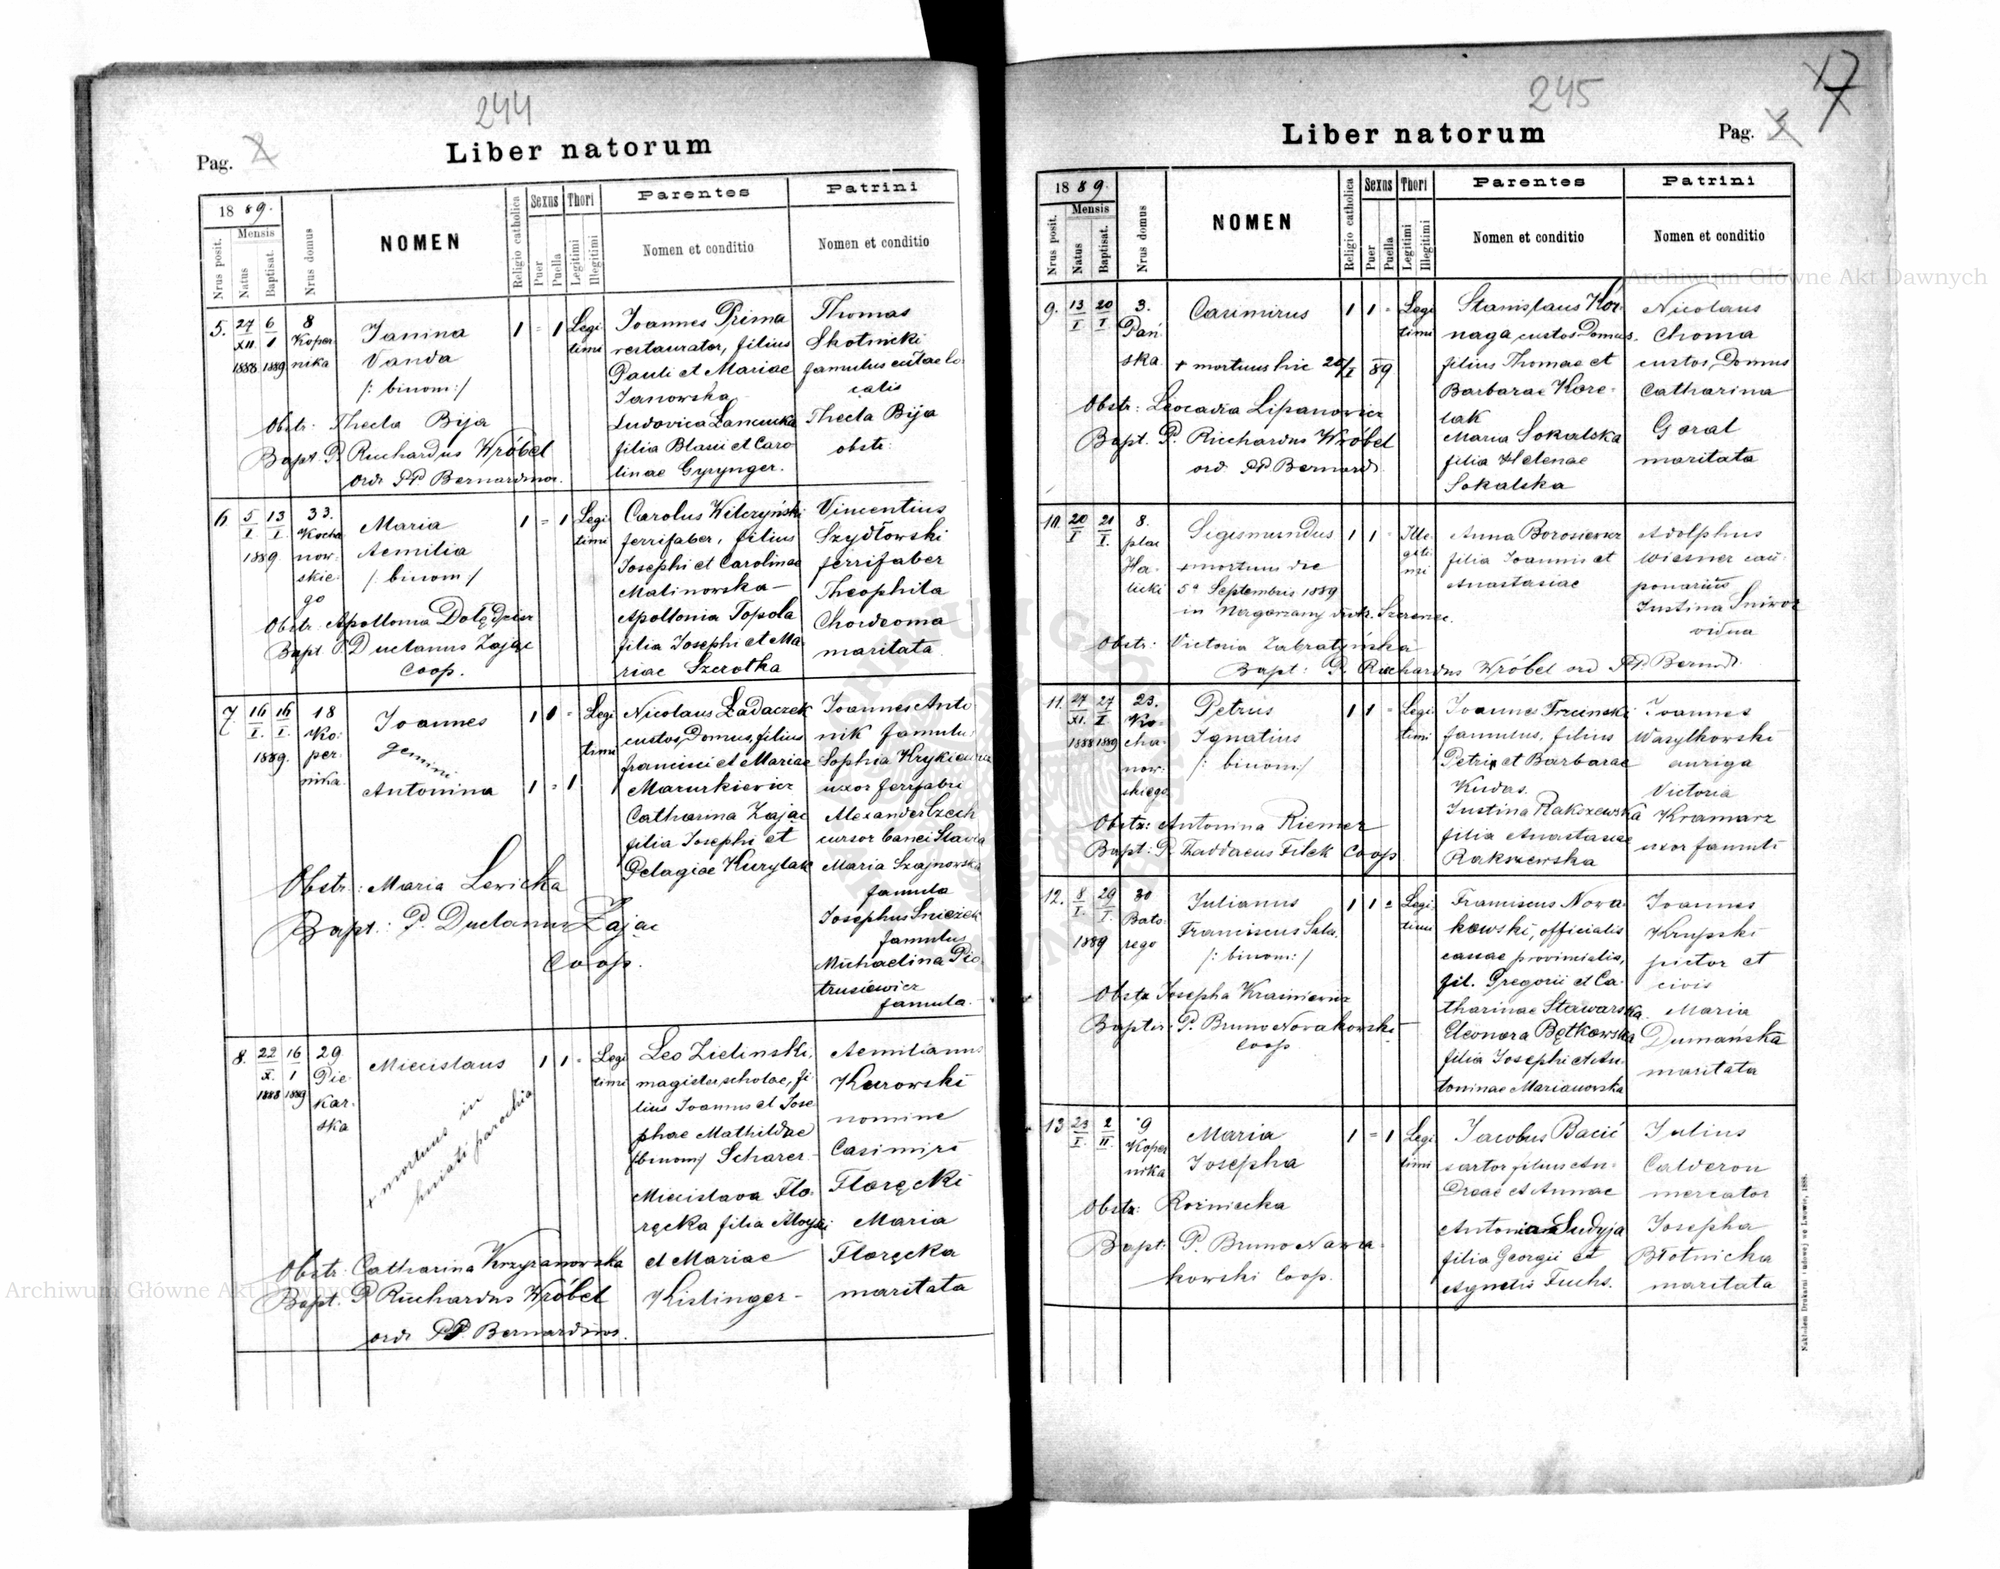 244
Pag. 2
Liber natorum
1889.
Nrus posit.
Mensis
Natus
Baptisat.
Nrus domus
NOMEN
Religio catholica
Sexus
Puer
Puella
Thori
Legitimi
Illegitimi
Parentes
Nomen et conditio
Patrini
Nomen et conditio
5. 27/XII 1888 6/1 1889 8 Kopernika
Janina
Vanda
/: binom :/
1 = 1 Legitimi
Joannes Prima
restaurator, filius
Pauli et Mariae
Janowska
Ludovica
filia Blasii et Caro
linae Gyrynger.
Thomas
Skotnicki
famulus
Thecla Bija
obstr:
Obstr. Thecla Bija
Bapt. P. Richardus Wróbel
ord PP Bernardinor.
6 5/I 13/I 1889 33. Kochanowskiego
Maria
Aemilia
/ binom /
1 = 1 Legitimi
Carolus Wilczyński
ferrifaber, filius
Josephi et Carolinae
Malinowska —
Apollonia Topola
filia Josephi et Ma
riae Szerotka
Vincentius
Szydłowski
ferrifaber
Theophila
maritata
Obstr. Apollonia
Bapt. P. Zając
Coop.
7. 16/I. 16/I. 1889. 18 Kopernika
Joannes
gemini
Antonina
1 1 = Legitimi
1 = 1
Nicolaus Ładaczek
custos Domus, filius
Francisci et Mariae
Mazurkiewicz
Catharina Zając
filia Josephi et
Pelagiae Kurylak
Joannes Anto
nik famulus
Sophia
uxor ferrifabri
Alexander Czech
cursor
Maria Szajnowska
famula
Josephus Śnieżek
famulus
Michaelina Pio
trusiewicz
famula.
Obstr.: Maria Lewicka
Bapt.: P. Zając
Coop.
8. 22/X. 1888 16/1 1889 29 Piekarska
Miecislaus
+ mortuus in
parochia
1 1 = Legitimi
Leo Zielinski,
magister scholae, fi
lius Joannis et Jose
phae Mathildae
/binom/ Scharer
Miecislava Flo
ręcka filia Aloysii
et Mariae
Kislinger —
Aemilianus
Kurowski
nomine
Casimiri
Floręcki
Maria
Floręcka
maritata
Obstr. Catharina Krzyżanowska
Bapt. P. Richardus Wróbel
ord PP. Bernardinor.
245
7
Liber natorum
Pag. 3
1889.
Nrus posit.
Mensis
Natus
Baptisat.
Nrus domus
NOMEN
Religio catholica
Sexus
Puer
Puella
Thori
Legitimi
Illegitimi
Parentes
Nomen et conditio
Patrini
Nomen et conditio
9. 13/I 20/I. 3. Pańska
Casimirus
+ mortuus hic 26/I 89
1 1 = Legitimi
Stanislaus Kor
naga custos Domus.
filius Thomae et
Barbarae Kore-
lak
Maria Sokalska
filia Helenae
Sokalska
Nicolaus
Choma
custos Domus
Catharina
Goral
maritata
Obstr: Leocadia Lipanowicz
Bapt. P. Richardus Wróbel
ord PP Bernard.
10. 20/I 21/I. 8. plac Halicki
Sigismundus
+ mortuus die
5a Septembris 1889
1 1 = Illegitimi
Anna Borosiewicz
filia Joannis et
Anastasiae
Adolphus
Wiesner cau-
ponarius
Justina
vidua
Obstr: Victoria
Bapt: P. Richardus Wróbel ord PP Bernard.
11. 27/XI. 1888 27/I. 1889 23. Kochanowskiego
Petrus
Ignatius
/: binom:/
1 1 = Legitimi
Joannes Trzcinski
famulus, filius
Petri et Barbarae
Kudas.
Justina Rakszewska
filia Anastasiae
Rakszewska
Joannes
Wasylkowski
auriga
Victoria
Kramarz
uxor famuli
Obstr: Antonina Riemer
Bapt: P. Thaddaeus Filek Coop
12. 8/I. 29/I. 1889 30 Batorego
Julianus
Franciscus Sal.
/: binom:/
1 1 = Legitimi
Franciscus Nowa
kowski, officialis
cassae provincialis,
fil. Gregorii et Ca
tharinae Stawarska
Eleonora Bętkowska
filia Josephi et An
toninae Marianowska
Joannes
Krupski
pictor et
civis
Maria
Dumańska
maritata
Obstr Josepha Kraśniewicz
Bapter: P. Bruno Nowakowski
Coop
13 23/I. 2/II. 9 Kopernika
Maria
Josepha
1 = 1 Legitimi
Jacobus Bacić
sartor filius An-
dreae et Annae
Antonina Sudyja
filia Georgii et
Agnetis Fuchs.
Julius
Calderon
mercator
Josepha
Błotnicka
maritata
Obstr: Rożniecka
Bapt: P. Bruno Nowa
kowski Coop.
Nakładem Drukarni Ludowej we Lwowie, 1888.
Archiwum Główne Akt Dawnych
Archiwum Główne Akt Dawnych